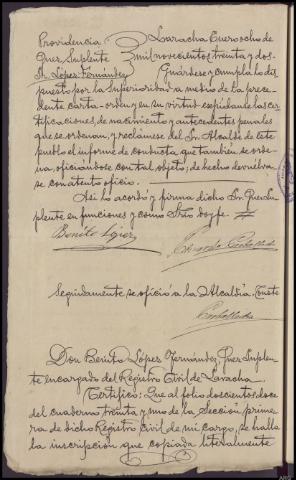 Providencia
Juez Suplente
Sr. López Fernández
Laracha Enero ocho de
mil novecientos treinta y dos-
Guárdese y cumpla lo dis
puesto por la Superioridad a medio de la prece-
dente carta-orden y en su virtud expídanse las cer-
tificaciones, de nacimiento y antecedentes penales
que se ordenan, y reclámese del Sr. Alcalde de este
pueblo el informe de conducta que también se orde-
na, oficiándose con tal objeto; de hecho devuélva-
se con atento oficio.
Así lo acordó y firma dicho Sr. Juez Su-
plente en funciones y como Srio doy fe.
Benito López
Seguidamente se ofició a la Alcaldía. Conste
Don Benito López Fernández, Juez Suplen-
te encargado del Registro Civil de Laracha.
Certifico: Que al folio doscientos doce
del cuaderno treinta y uno de la Sección primera
de dicho Registro civil de mi cargo, se halla
la inscripción que copiada literalmente